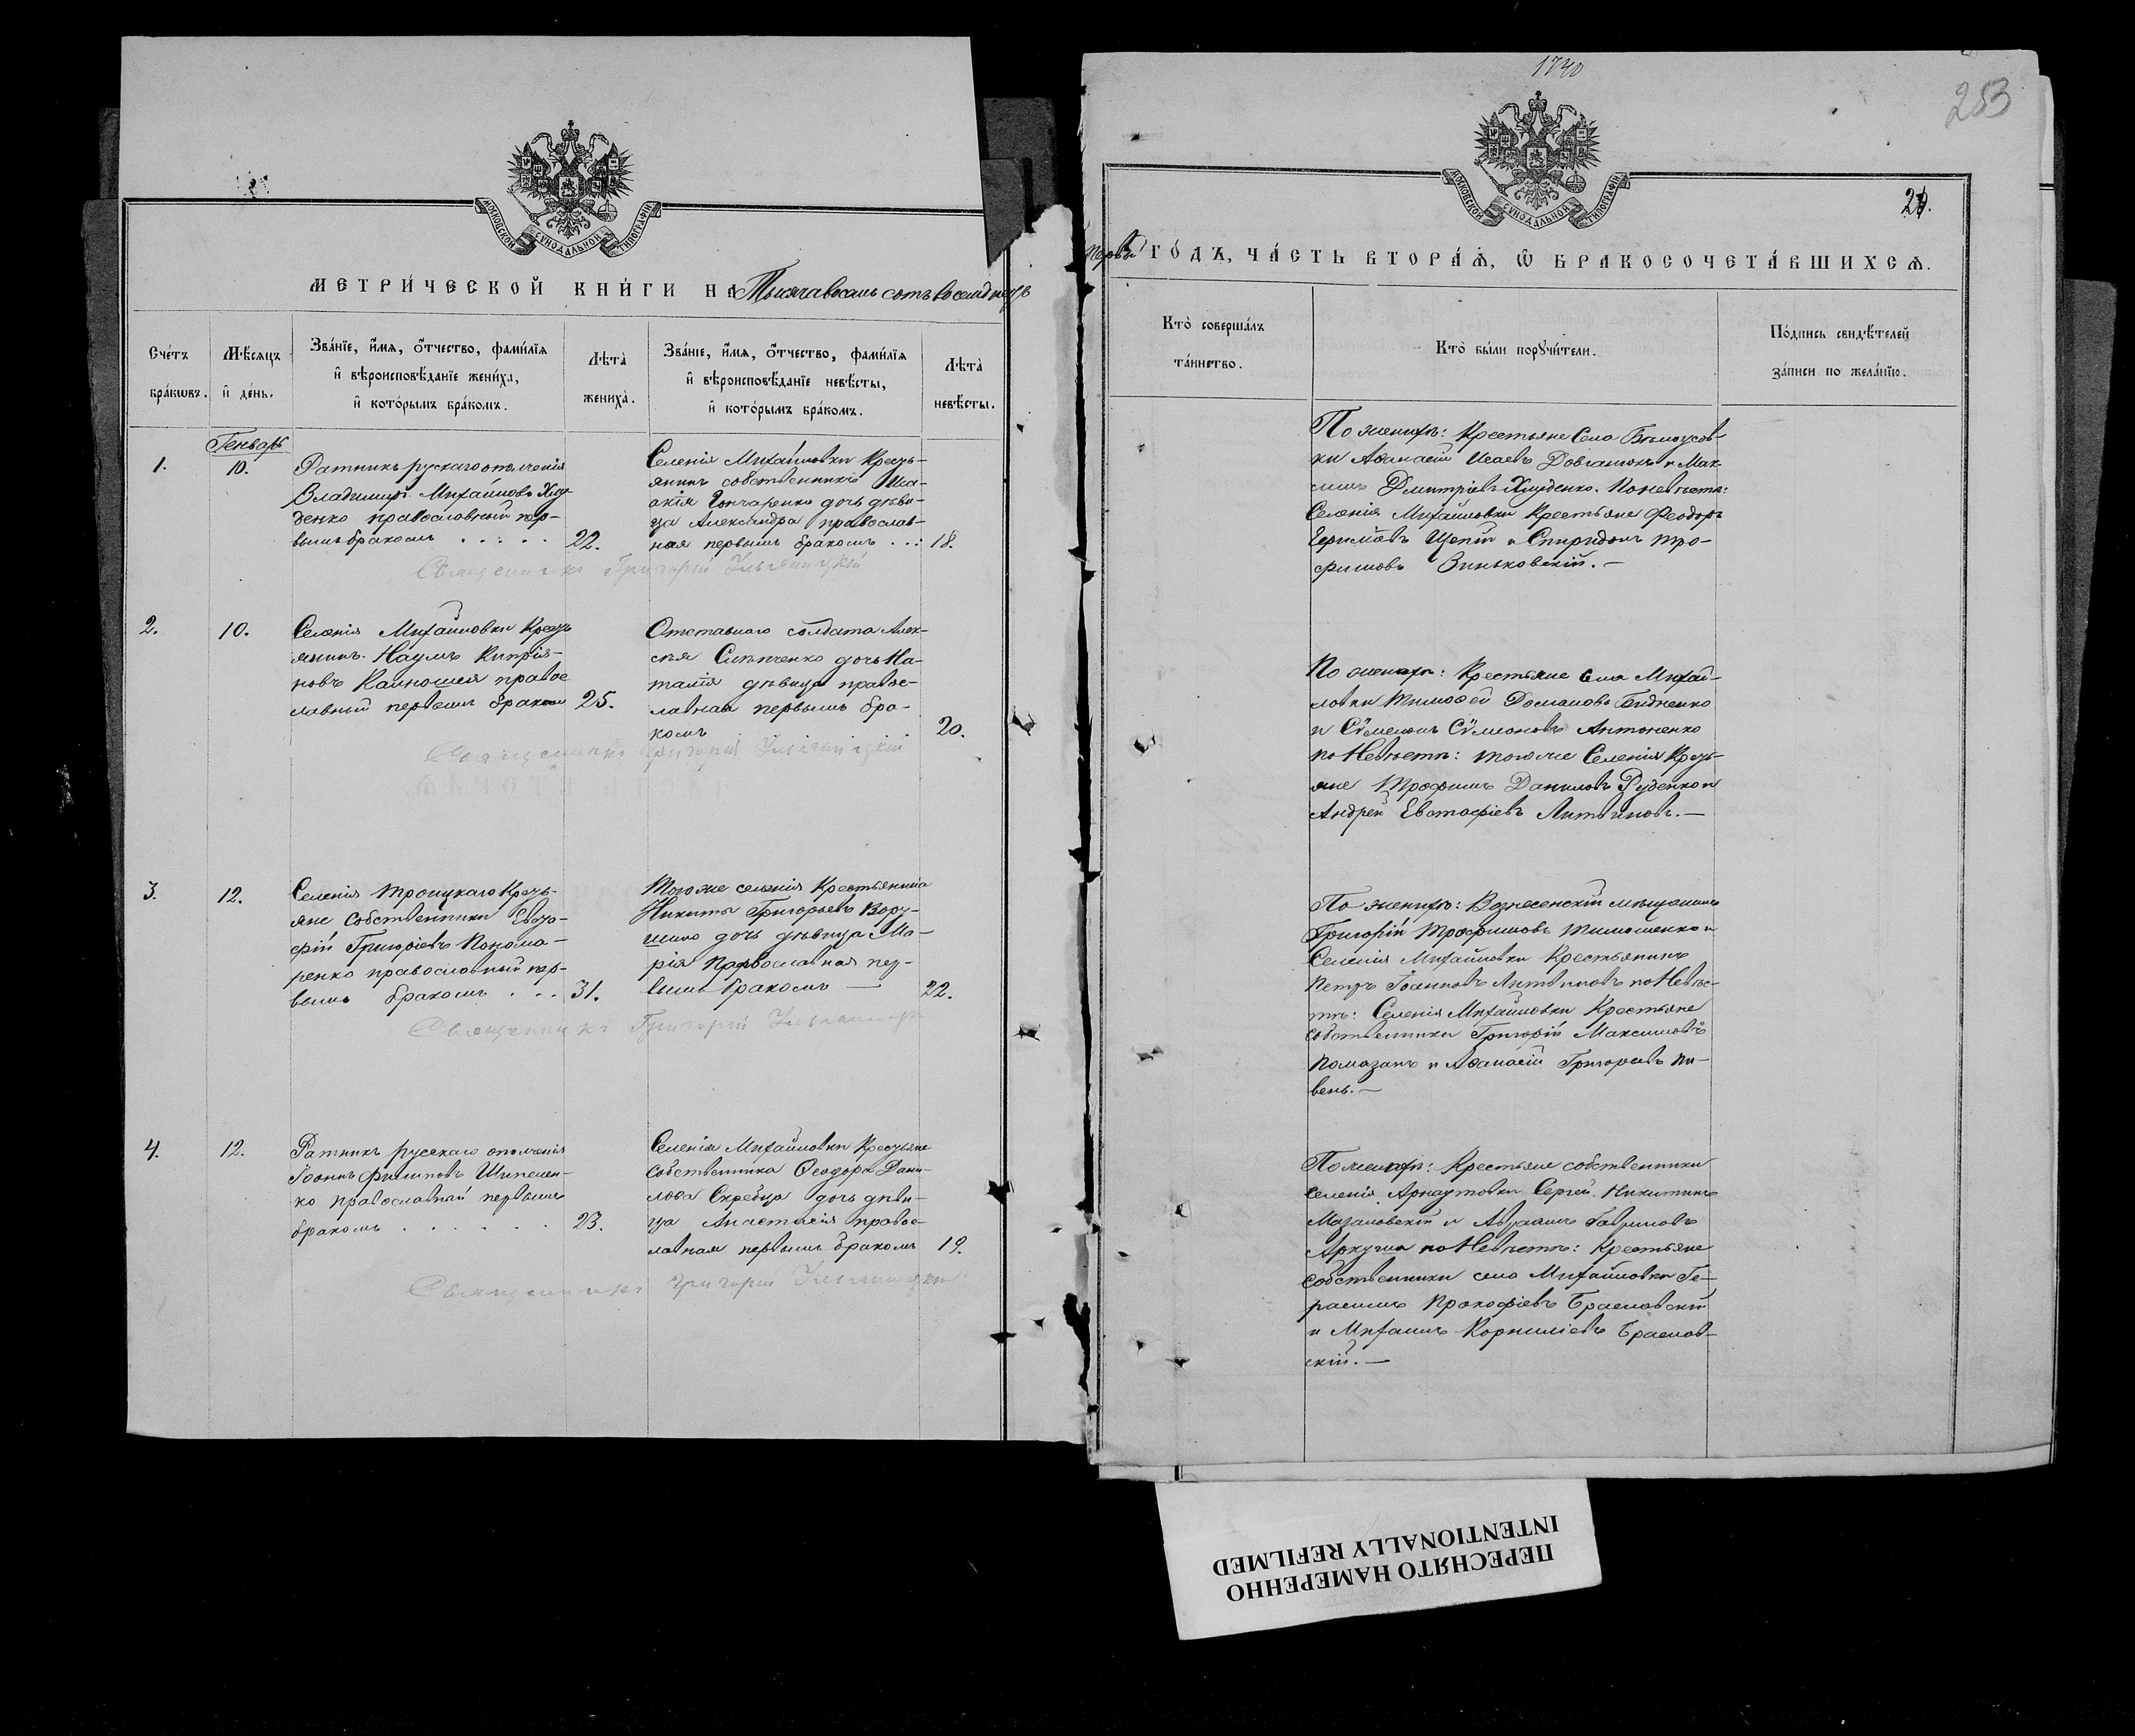 МОСКОВСКОЙ СУНОДАЛЬНОЙ ТИПОГРАФІИ
МЕТРИ́ЧЕСКОЙ КНИ́ГИ НА Тысяча восемь сотъ восемдесятъ
Сче́тъ бра́кѡвъ.
Мѣ́сяцъ и҆ де́нь.
Зва́нїе, и҆́мя, ѻ҆́тчество, фами́лїя
и҆ вѣроисповѣ́данїе жениха̀,
и҆ кото́рымъ бра́комъ.
Лѣта̀ жениха̀.
Зва́нїе, и҆́мя, ѻ҆́тчество, фами́лїя
и҆ вѣроисповѣ́данїе невѣ́сты,
и҆ кото́рымъ бра́комъ.
Лѣта̀ невѣ́сты.
Генварь
1.
10.
Ратникъ рускаго ополченія
Владимиръ Михайловъ
денко православный пер-
вымъ бракомъ . . . . .
22.
Селенія Михайловки Кресть-
янина собственника Иса-
акія Гончаренко дочь дѣви-
ца Александра православ-
ная первымъ бракомъ . . .
18.
Священникъ Григорій
2.
10.
Селенія Михайловки Кресть
янинъ Наумъ Кипрія-
новъ Калношея правос
лавный первымъ бракомъ
25.
Отставнаго солдата Алек-
сѣя дочь На-
талія дѣвица правос-
лавная первымъ бра-
комъ
20.
Священникъ Григорій
3.
12.
Селенія Троицкаго Кресть-
яне собственники Евста-
фій Григоріевъ Понома-
ренко православный пер-
вымъ бракомъ . . .
31.
Того же селенія Крестьянина
Никиты Григорьева Вору-
шило дочь дѣвица Ма-
рія Православная пер-
вымъ бракомъ —
22.
Священникъ Григорій
4.
12.
Ратникъ русскаго ополченія
Іоаннъ Филиповъ Шипелен-
ко православный первымъ
бракомъ . . . . . .
23.
Селенія Михайловки Крестьяне
собственника Ѳеодора Дани-
лова Скребца дочь дѣви-
ца Анастасія правос-
лавная первымъ бракомъ
19.
Священникъ Григорій
1740
253
МОСКОВСКОЙ СУНОДАЛЬНОЙ ТИПОГРАФІИ
первый ГО́ДЪ, ЧА́СТЬ ВТОРА́Ѧ, Ѡ҆ БРАКОСОЧЕТА́ВШИХСѦ.
Кто̀ соверша́лъ та́инство.
Кто̀ бы́ли порꙋчи́тели.
По́дпись свидѣ́телей за́писи по жела́нїю.
По женихѣ: Крестьяне Села Бѣлоусов-
ки Аѳанасій Исаевъ Довганюкъ и Мак-
симъ Дмитріевъ По невѣстѣ:
Селенія Михайловки Крестьяне Феодоръ
Щепій и Спиридонъ Тро-
фимовъ Виньковскій. —
По женихѣ: Крестьяне Села Михай-
ловки Тимоѳей Домановъ Бидненко
и Сѵмеонъ Сѵмеоновъ Антоненко
по Невѣстѣ: того же Селенія Кресть-
яне Трофимъ Даниловъ Руденко и
Андрей Евстафіевъ Литвиновъ. —
По женихѣ: Вознесенскій мѣщанинъ
Григорій Трофимовъ Тимошенко и
Селенія Михайловки Крестьянинъ
Петръ Іоанновъ Литвиновъ по Невѣс-
тѣ: Селенія Михайловки Крестьяне
собственники Григорій Максимовъ
Помазанъ и Аѳанасій Григорьевъ Пи-
вень. —
По женихѣ: Крестьяне собственники
селенія Арнаутовки Сергей Никитинъ
Мазановскій и Авраамъ Гавриловъ
по Невѣстѣ: Крестьяне
собственники села Михайловки Ге-
расимъ Прокофіевъ Браславскій
и Михаилъ Корниліевъ Браслав-
скій. —
ПЕРЕСНЯТО НАМЕРЕННО
INTENTIONALLY REFILMED